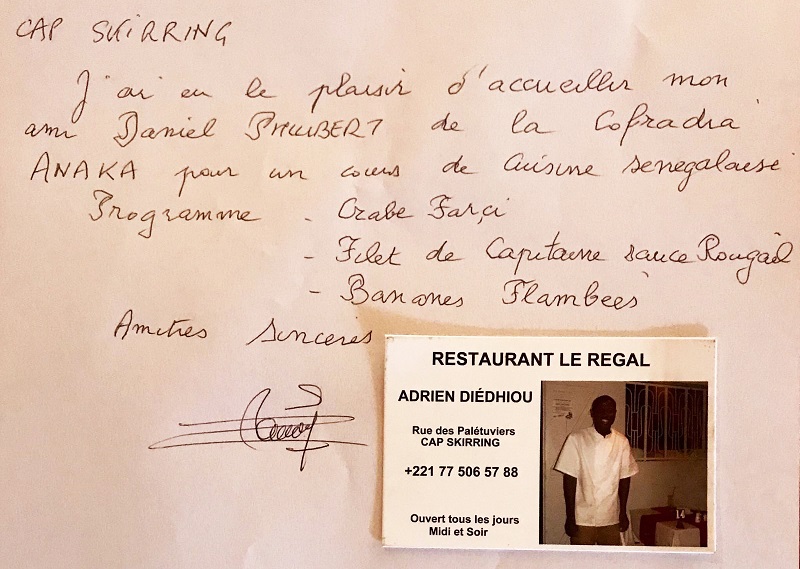 CAP SKIRRING
J'ai eu le plaisir d'accueillir mon
ami Daniel PHILIBERT de la Cofradia
ANAKA pour un cours de Cuisine senegalaise
Programme - Crabe Farçi
- Filet de Capitaine sauce Rougail
- Bananes Flambées
Amitiés Sincères
RESTAURANT LE REGAL
ADRIEN DIÉDHIOU
Rue des Palétuviers
CAP SKIRRING
+221 77 506 57 88
Ouvert tous les jours
Midi et Soir
14